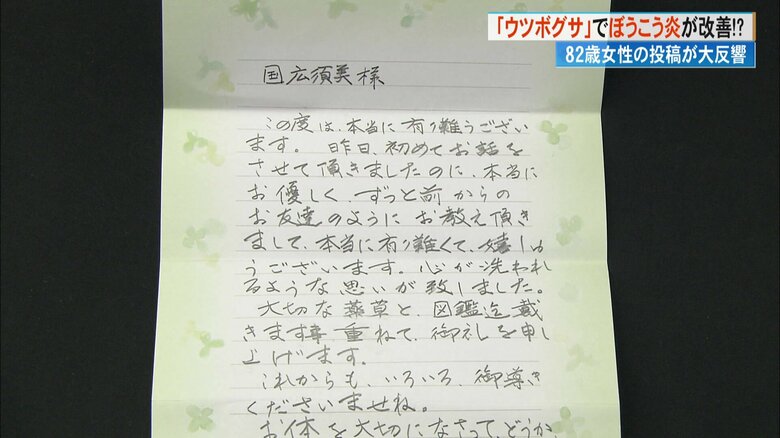 「ウツボグサ」でぼうこう炎が改善!?
82歳女性の投稿が大反響
国広須美様
この度は、本当に有り難うござい
ます。昨日、初めてお話を
させて頂きましたのに、本当に
お優しく、ずっと前からの
お友達のようにお教え頂き
まして、本当に有り難くて、嬉しゅ
うございます。心が洗われ
るような思いが致しました。
大切な薬草と、図鑑迄戴
きます事重ねて、御礼を申し
上げます。
これからも、いろいろ、御導き
くださいませね。
お体を大切になさって、どうか、